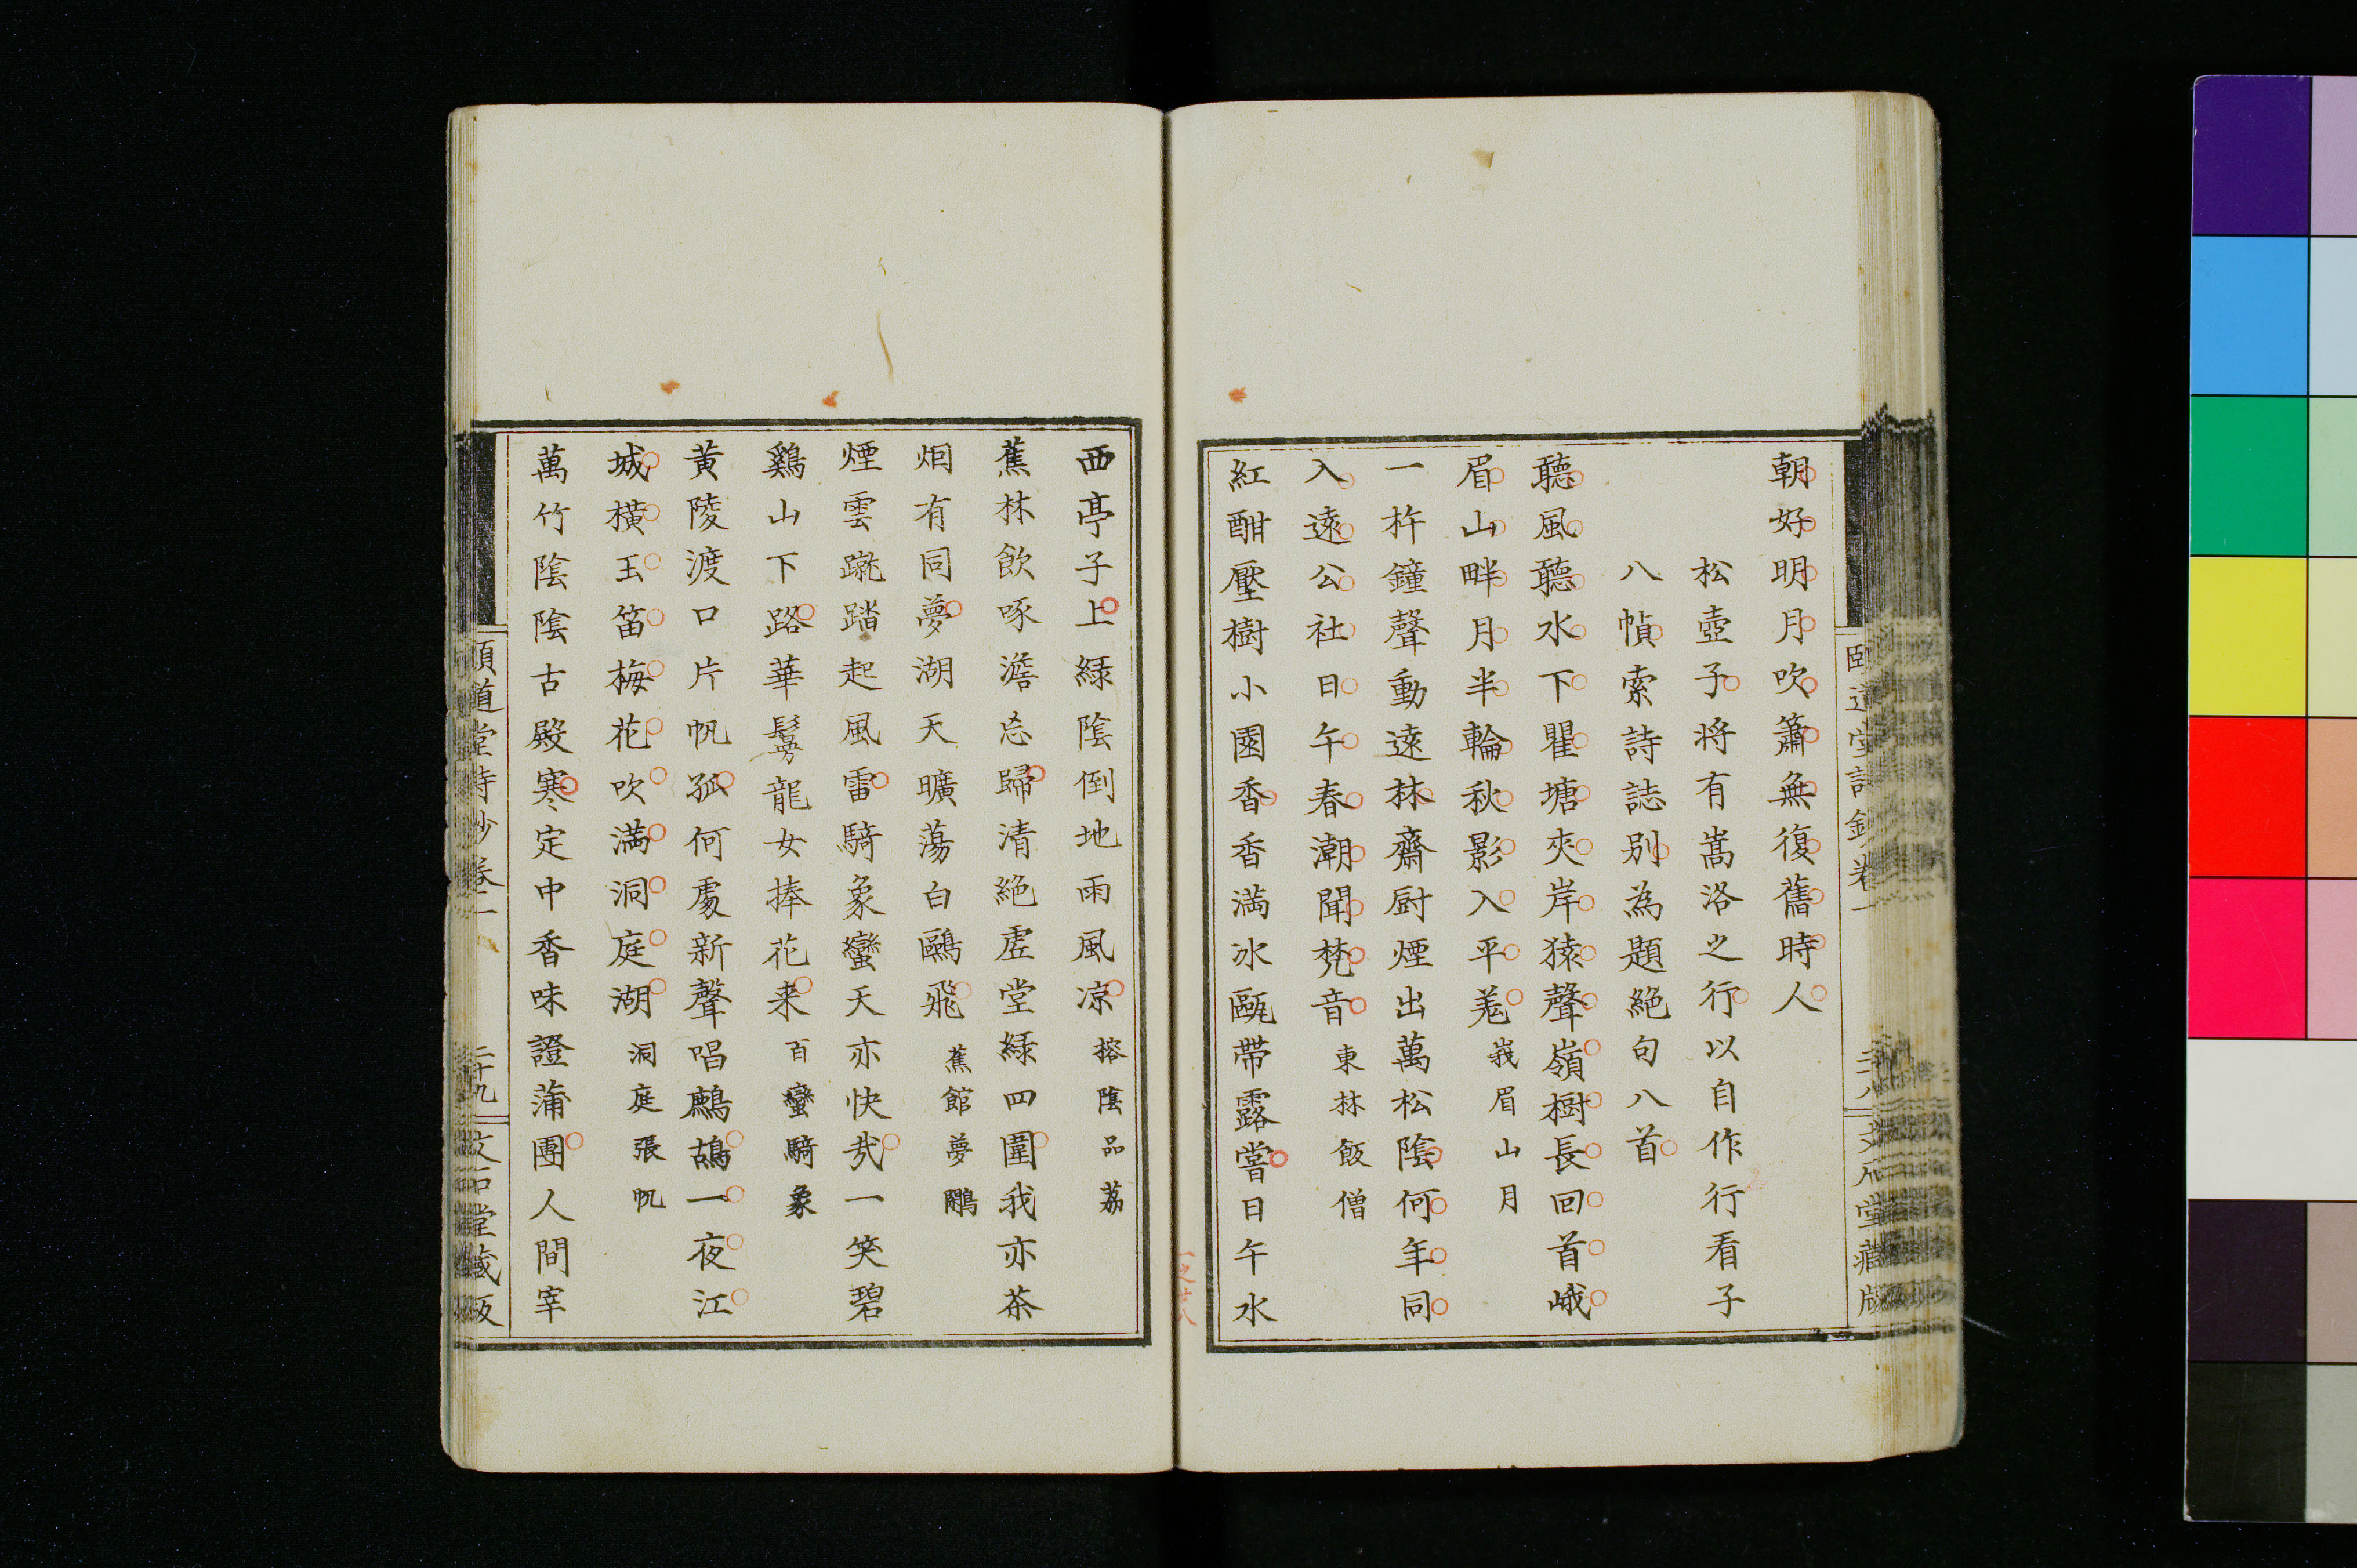 朝好明月吹簫無復舊時人
松壺子将有嵩洛之行以自作行看子
八幀索詩誌别為題絶句八首
聽風聽水下瞿塘夾岸猿聲嶺樹長回首峨
眉山畔月半輪秋影入平羌 峩眉山月
一杵鐘聲動遠林齋厨煙出萬松陰何年同
入遠公社日午春潮聞梵音 東林飯僧
紅酣壓樹小園香香滿冰甌帶露嘗日午水
西亭子上緑陰倒地雨風凉 榕陰品荔
蕉林飲啄澹忘歸清絶虚堂緑四圍我亦茶
烟有同夢湖天曠蕩白鷗飛 蕉館夢鵰
煙雲蹴踏起風雷騎象蠻天亦快哉一笑碧
鷄山下路華鬘龍女捧花来 百蠻騎象
黄陵渡口片帆孤何處新聲唱鷓鴣一夜江
城横玉笛梅花吹滿洞庭湖 洞庭張帆
萬竹陰陰古殿寒定中香味證蒲團人間宰
頤道堂詩鈔卷一
二十八
文石堂藏版
頤道堂詩鈔卷一
二十九
文石堂藏版